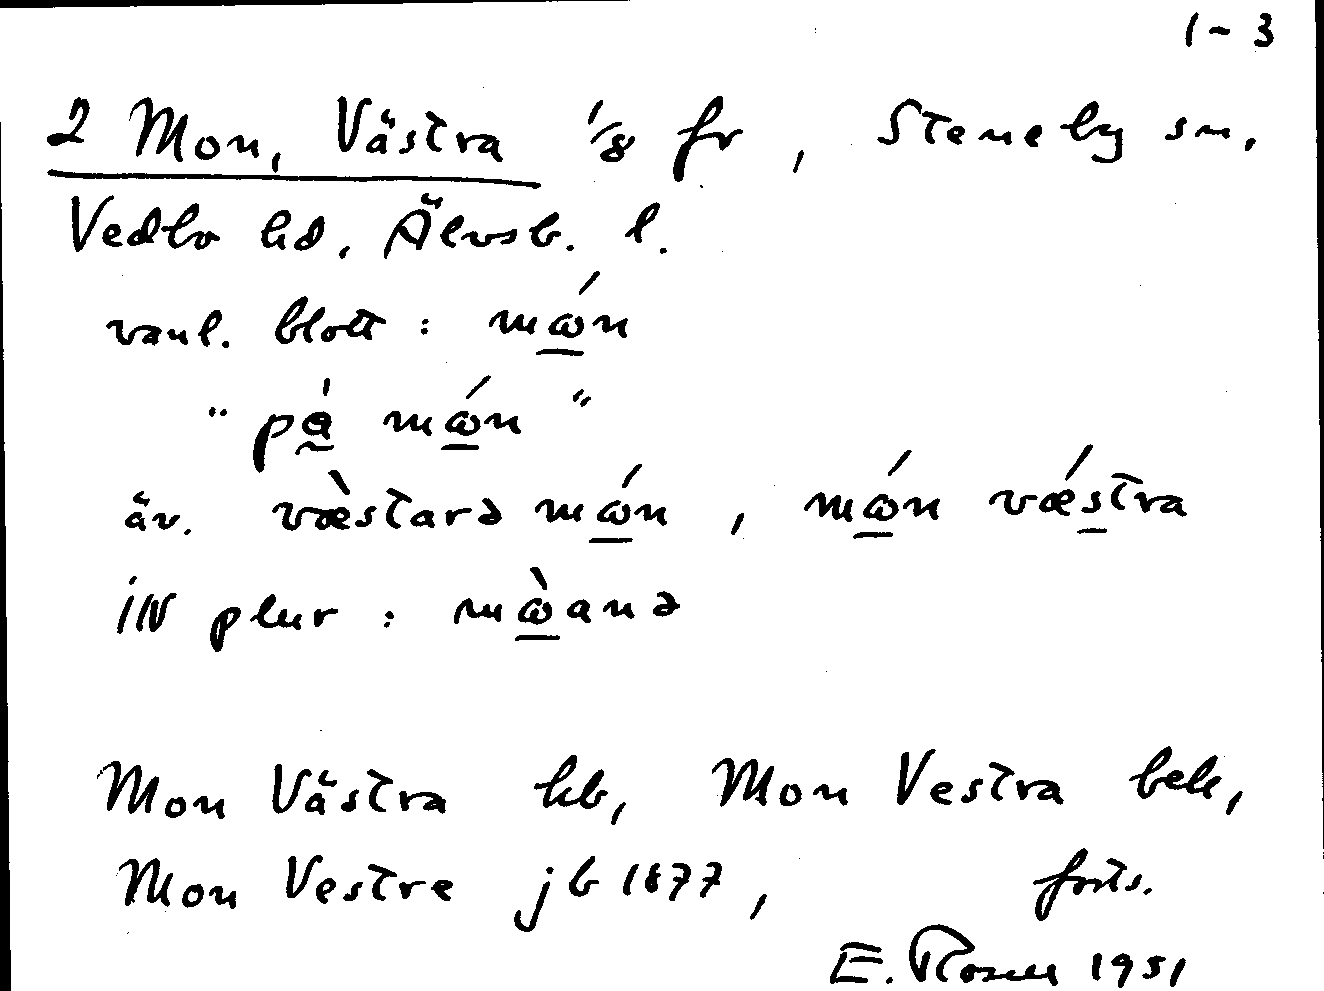 1-3
2 Mon, Västra 1/8 fr, Steneby sn.
Vedbo hd, Älvsb. l.
vanl. blott : mώn
"på̀ mώn"
äv. væ̀starə mώn, mώn vǽstra
IN plur : mὼanə
Mon Västra kb, Mon Vestra bek,
Mon Vestre jb 1877, forts.
E. Rosell 1951